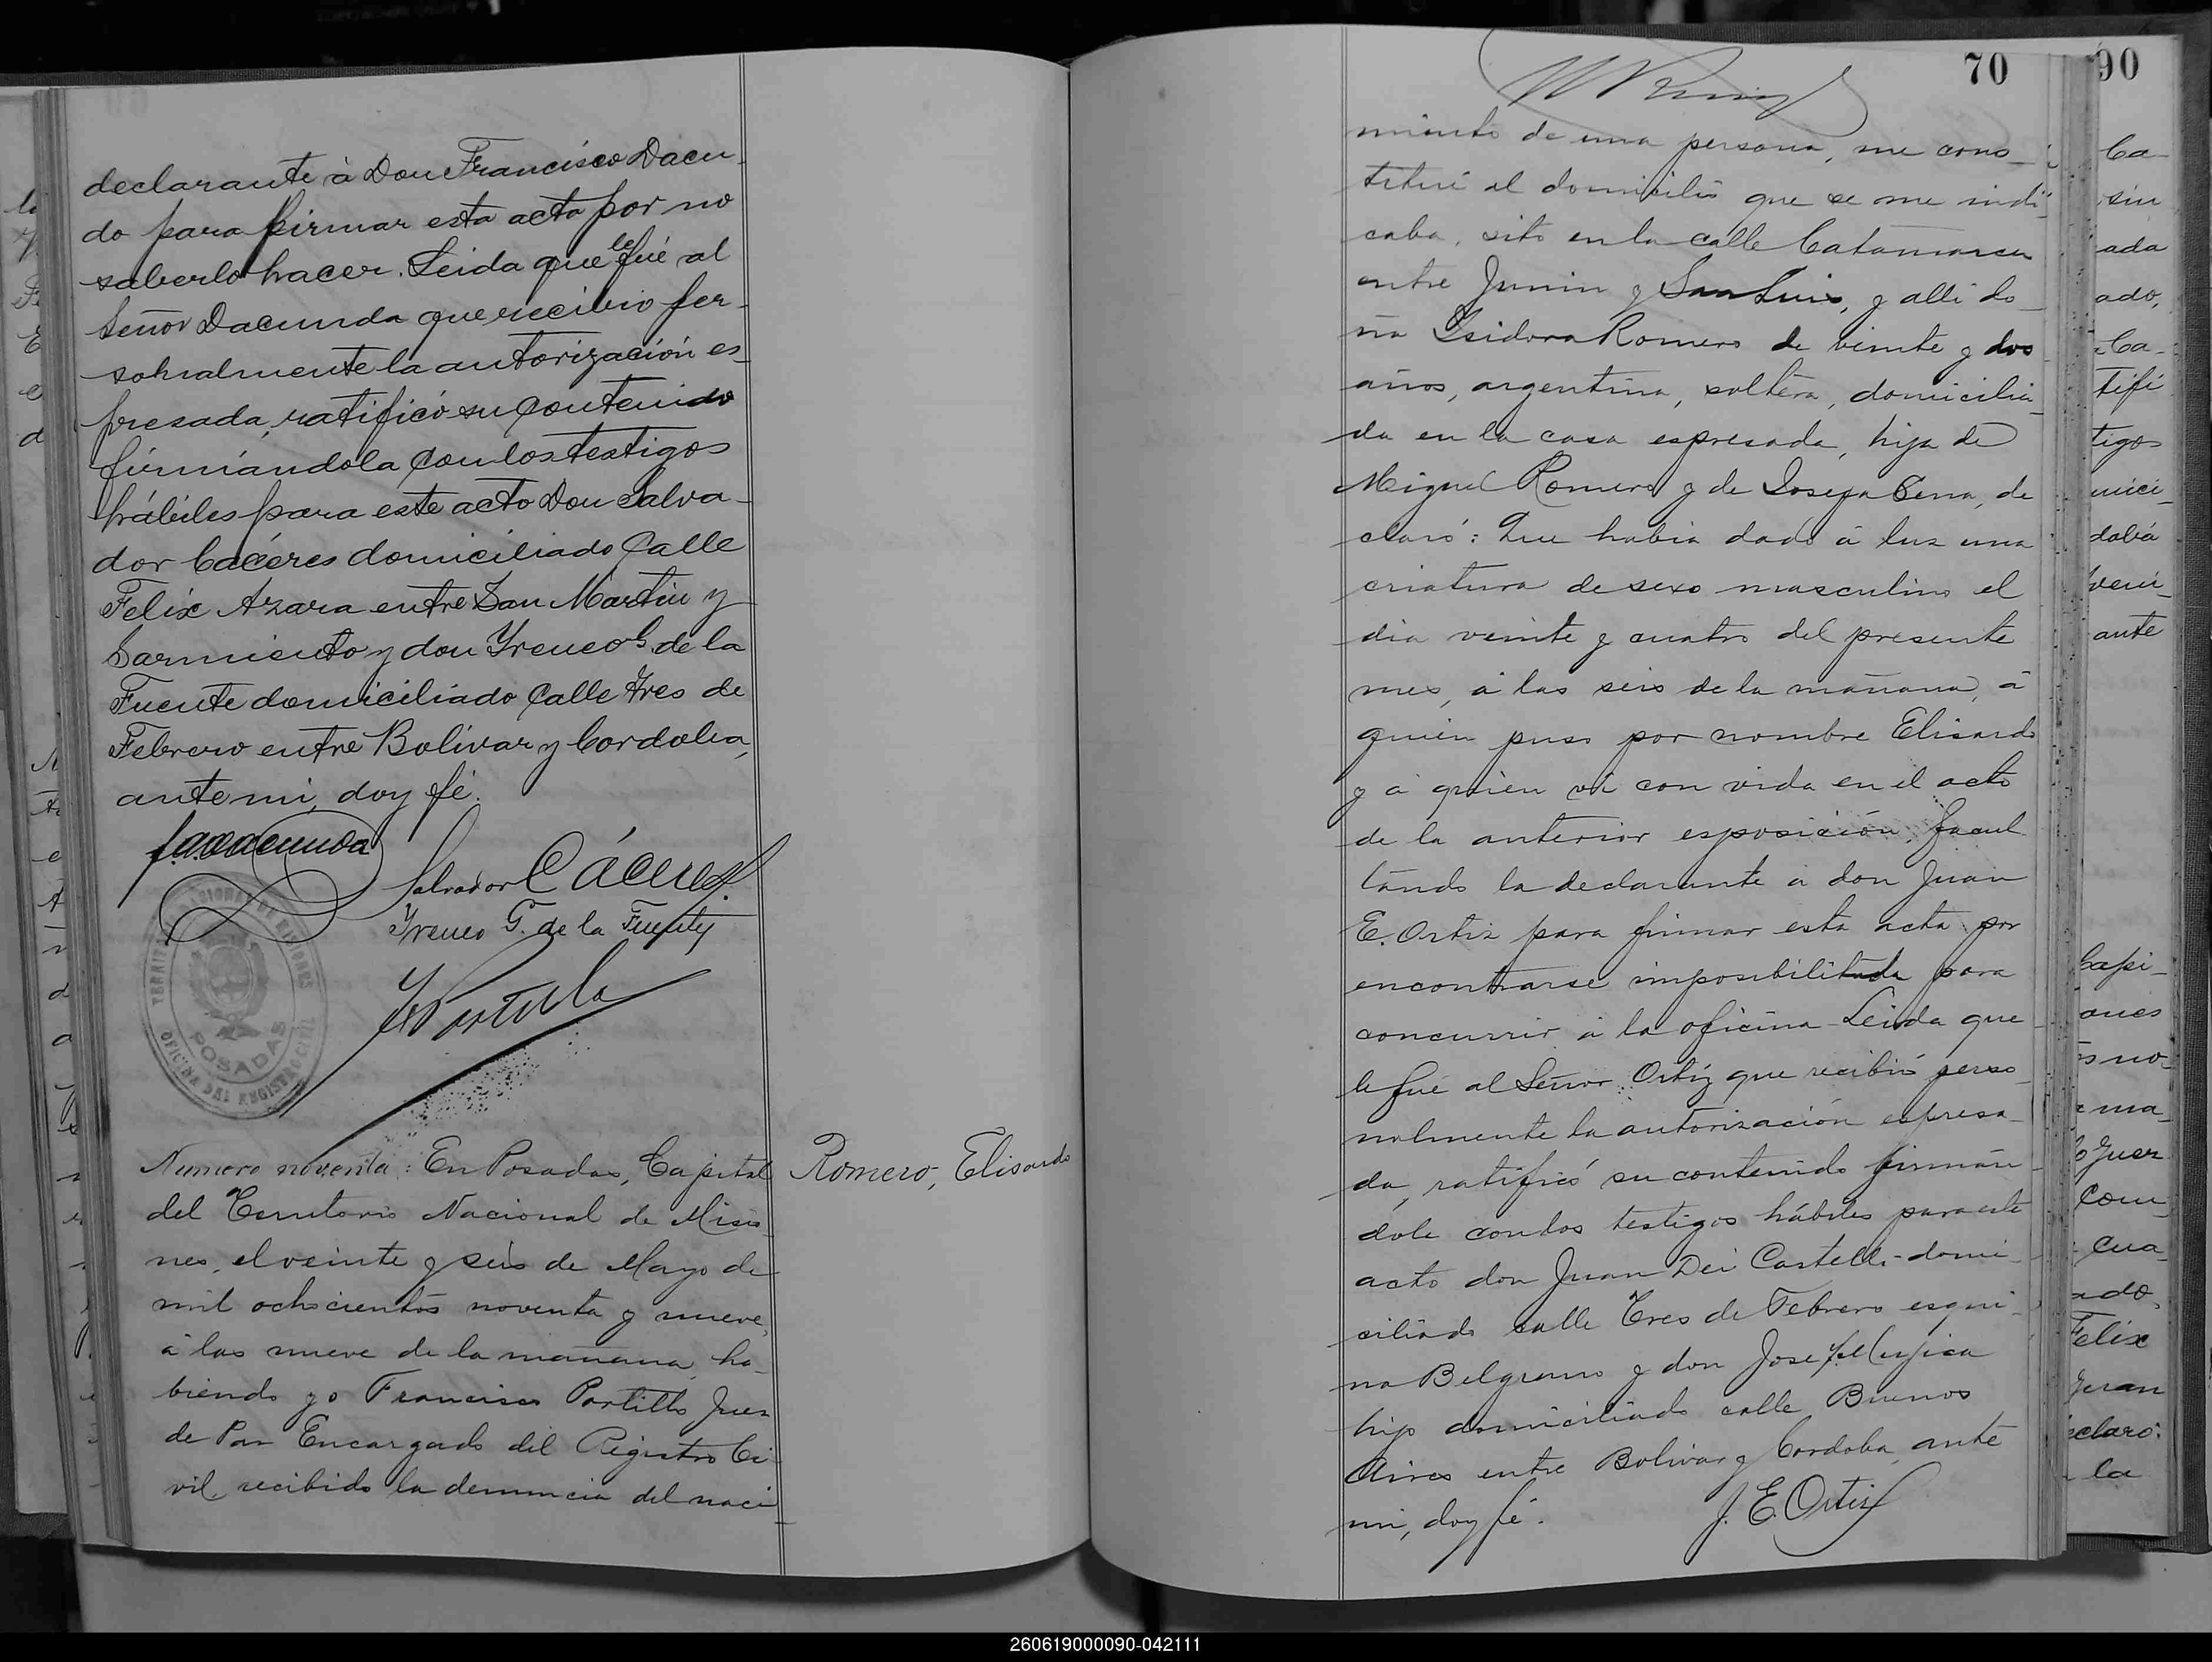 declarante à Don Francisco Dacun
do para firmar esta acta por no
saberlo hacer. Leida que le fué al
Señor Dacunda que recibio per-
sonalmente la autorización es-
presada, ratificó su contenido
firmándola con los testigos
hábiles para este acto Don Salva-
dor Cacéres domiciliado Calle
Felix Azara entre San Martin y
Sarmiento y don Yreneo G. de la
Fuente domiciliado Calle tres de
Febrero entre Bolívar y Cordoba,
ante mi, doy fé.
Salvador Cáceres
Yreneo G. de la Fuente
POSADAS
OFICINA DEL REGISTRO CIVIL
Numero noventa: En Posadas, Capital
del Territorio Nacional de Misio
nes, el veinte y seis de Mayo de
mil ochocientos noventa y nueve,
á las nueve de la mañana, ha-
biendo yo Francisco Portillo Juez
de Paz Encargado del Registro Ci
vil, recibido la denuncia del naci
Romero, Elisardo
70
miento de una persona, me cons-
tituí al domicilio que se me indi-
caba, sito en la calle Catamarca
entre Junin y San Luis, y alli do-
ña Ysidora Romero de veinte y dos
años, argentina, soltera, domicilia-
da en la casa espresada, hija de
Miguel Romero y de Josefa, de
claró: Que habia dado á luz una
criatura de sexo masculino el
dia veinte y cuatro del presente
mes, á las seis de la mañana, á
quien puso por nombre Elisardo
y á quien vi con vida en el acto
de la anterior esposición, facul
tando la declarante á don Juan
E. Ortiz para firmar esta acta por
encontrarse imposibilitada para
concurrir á la oficina - Leida que
le fué al Señor Ortíz que recibió perso
nalmente la autorización espresa-
da, ratificó su contenido firmán-
dola con los testigos hábiles para este
acto don Juan Dei Castelli - domi-
ciliado calle Tres de Febrero esqui-
na Belgrano y don José Mujica
hijo domiciliado calle Buenos
Aires entre Bolivar y Cordoba, ante
mi, doy fé.
J. E. Ortiz
90
260619000090-042111